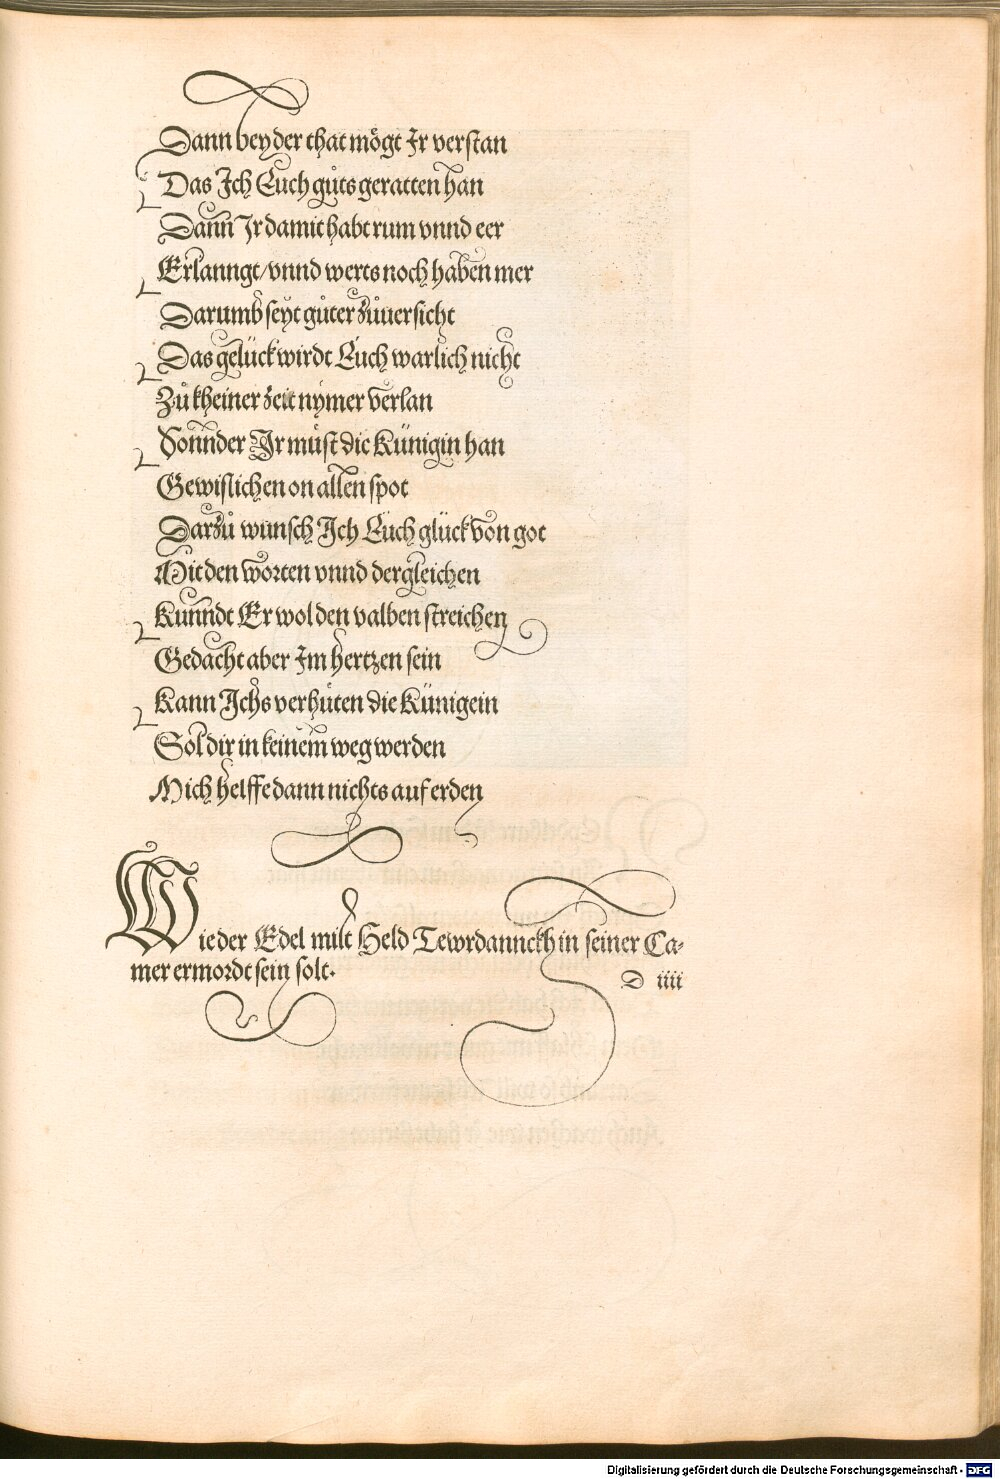 Dann bey der that mögt Ir verstan
Das Ich Euch gůts geratten han
Dann Ir damit habt rum vnnd eer
Erlanngt/vnnd werts noch haben mer
Darumb seyt gůter zůuersicht
Das gelück wirdt Euch warlich nicht
Zů kheiner zeit nymer verlan
Sonnder Ir můst die Künigin han
Gewislichen on allen spot
Darzů wünsch Ich Euch glück von got
Mit den worten vnnd dergleichen
Kunndt Er wol den valben streichen
Gedacht aber Im hertzen sein
Kann Ichs verhüten die Künigein
Sol dir in keinem weg werden
Mich helffe dann nichts auf erden
Wie der Edel milt Held Tewrdannckh in seiner Ca-
mer ermordt sein solt.
D iiii
Digitalisierung gefördert durch die Deutsche Forschungsgemeinschaft - DFG